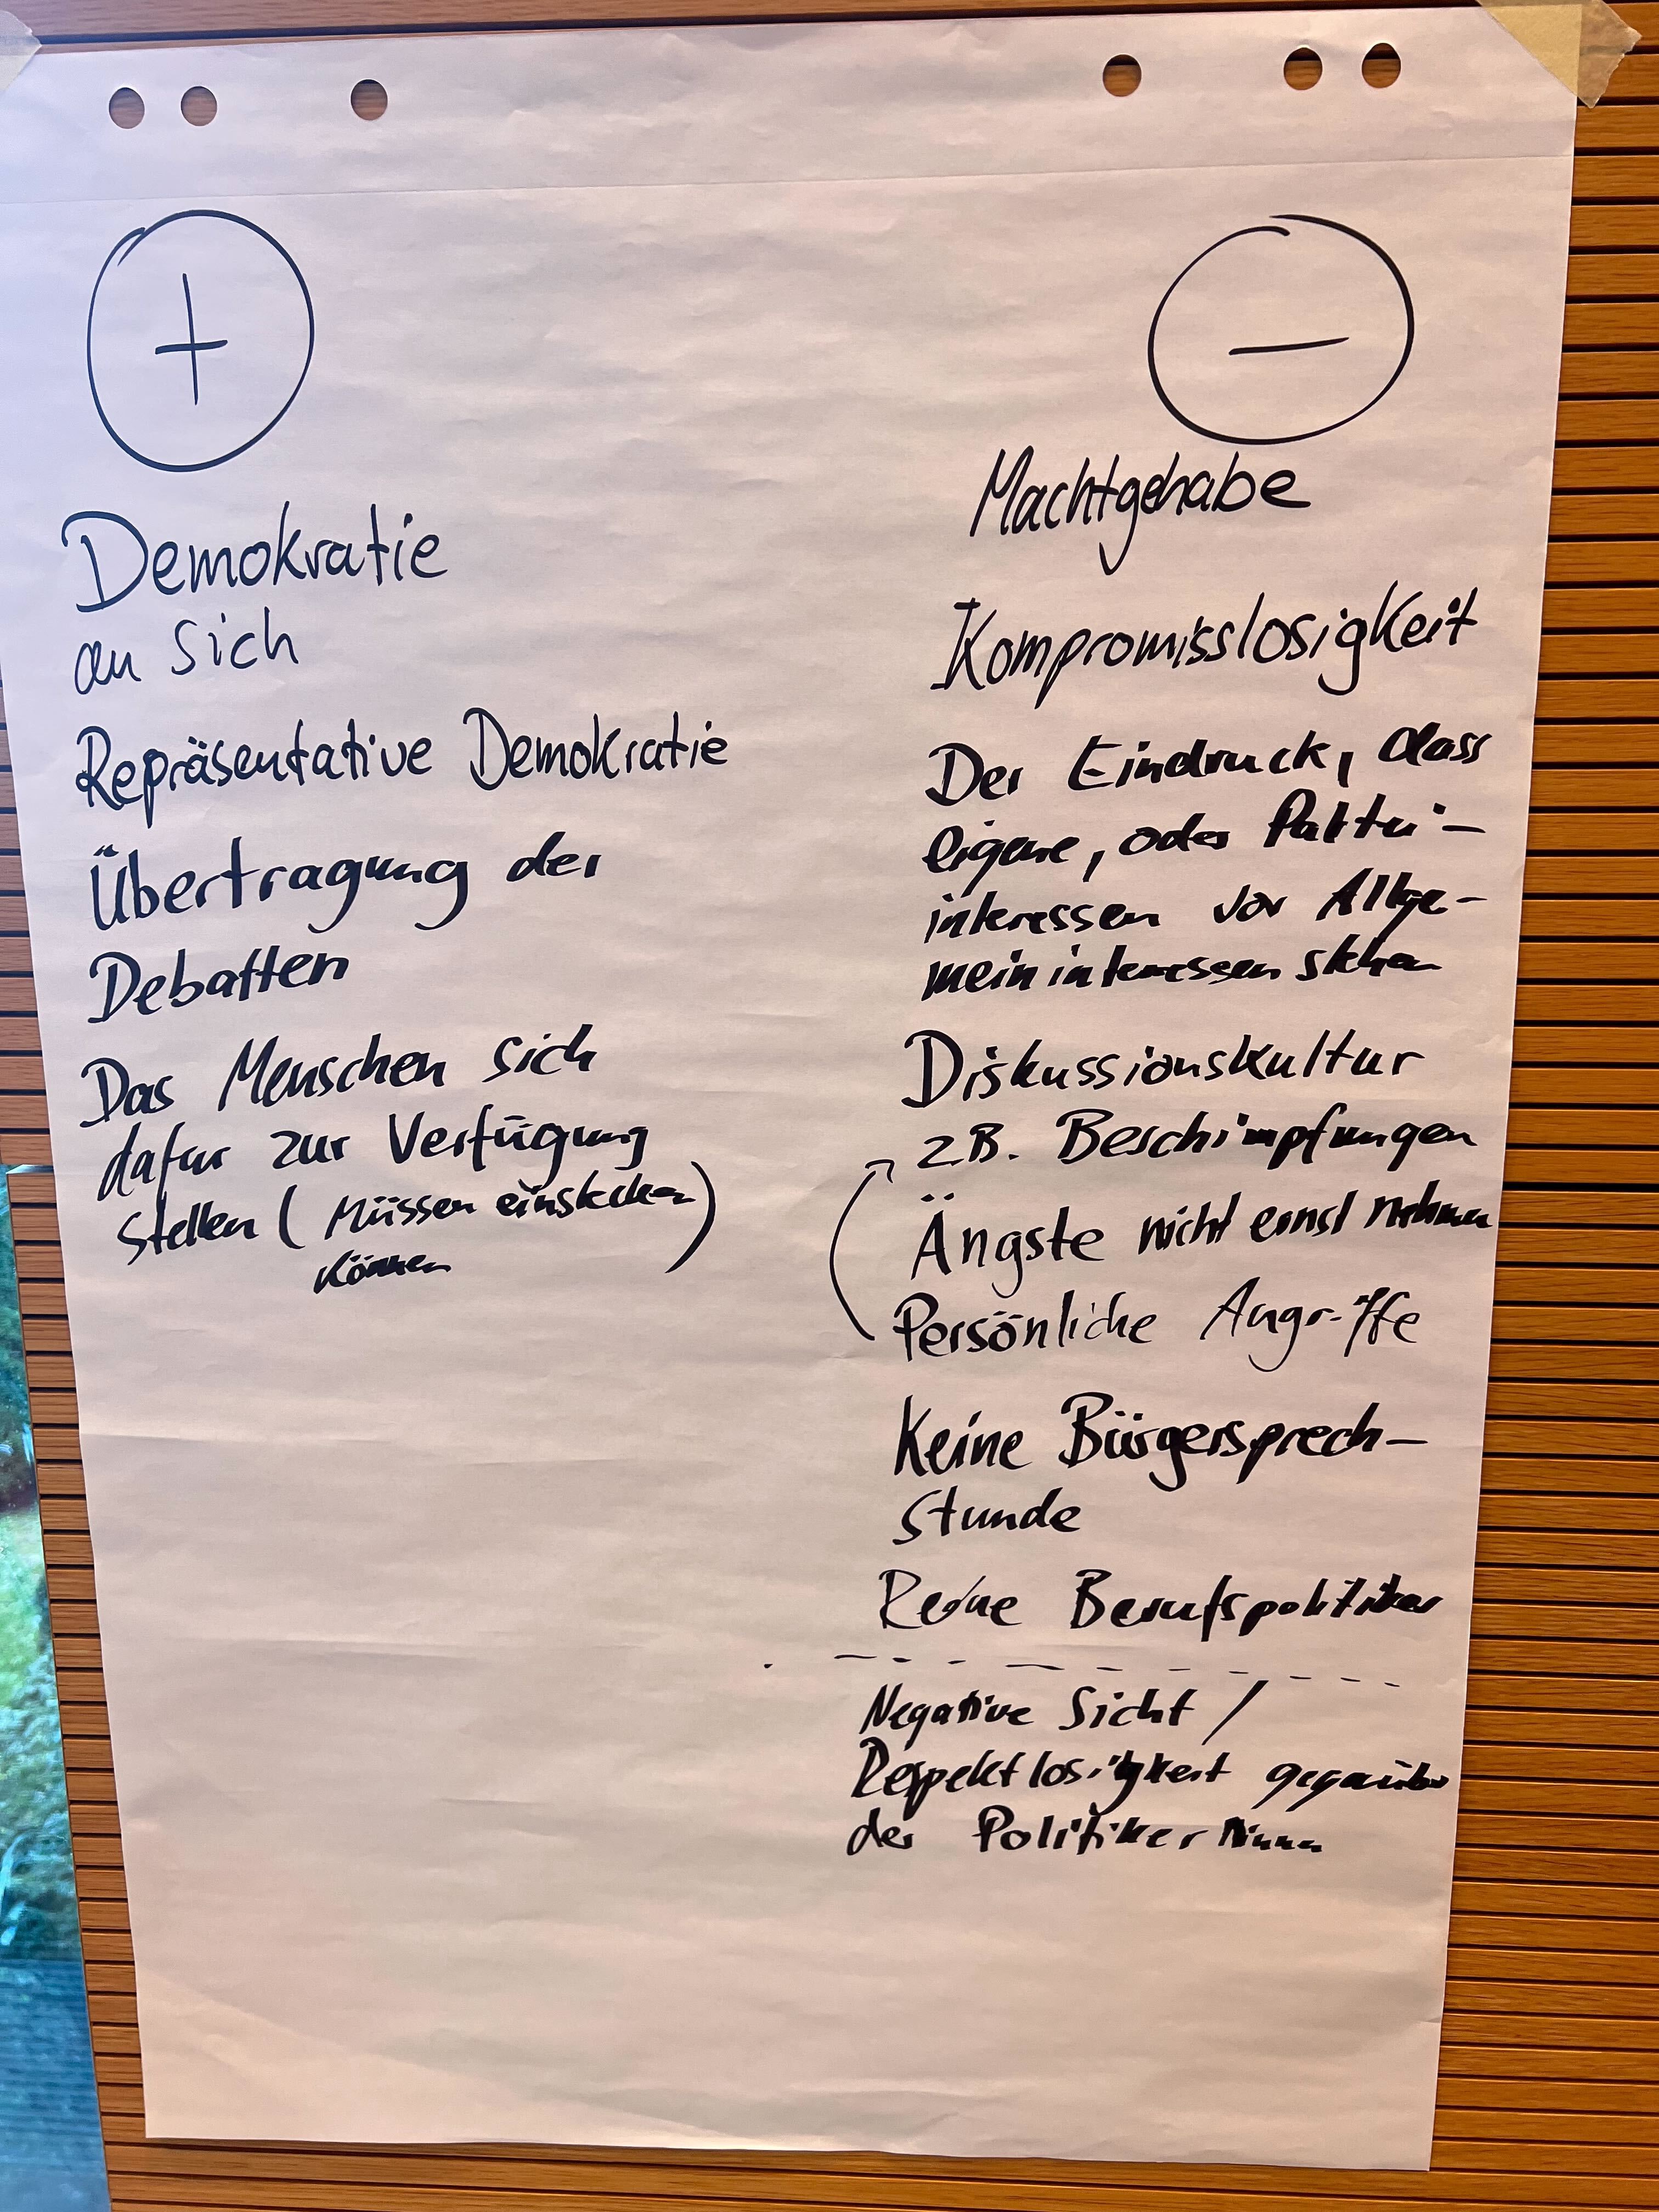 +
Demokratie
an sich
Repräsentative Demokratie
Übertragung der
Debatten
Das Menschen sich
dafür zur Verfügung
stellen (Müssen einstecken)
können
−
Machtgehabe
Kompromisslosigkeit
Der Eindruck, dass
eigene, oder Partei-
interessen vor Allge-
meininteressen stehen
Diskussionskultur
z.B. Beschimpfungen
Ängste nicht ernst nehmen
Persönliche Angriffe
Keine Bürgersprech-
stunde
Reine Berufspolitiker
Negative Sicht /
Respektlosigkeit gegenüber
der PolitikerInnen